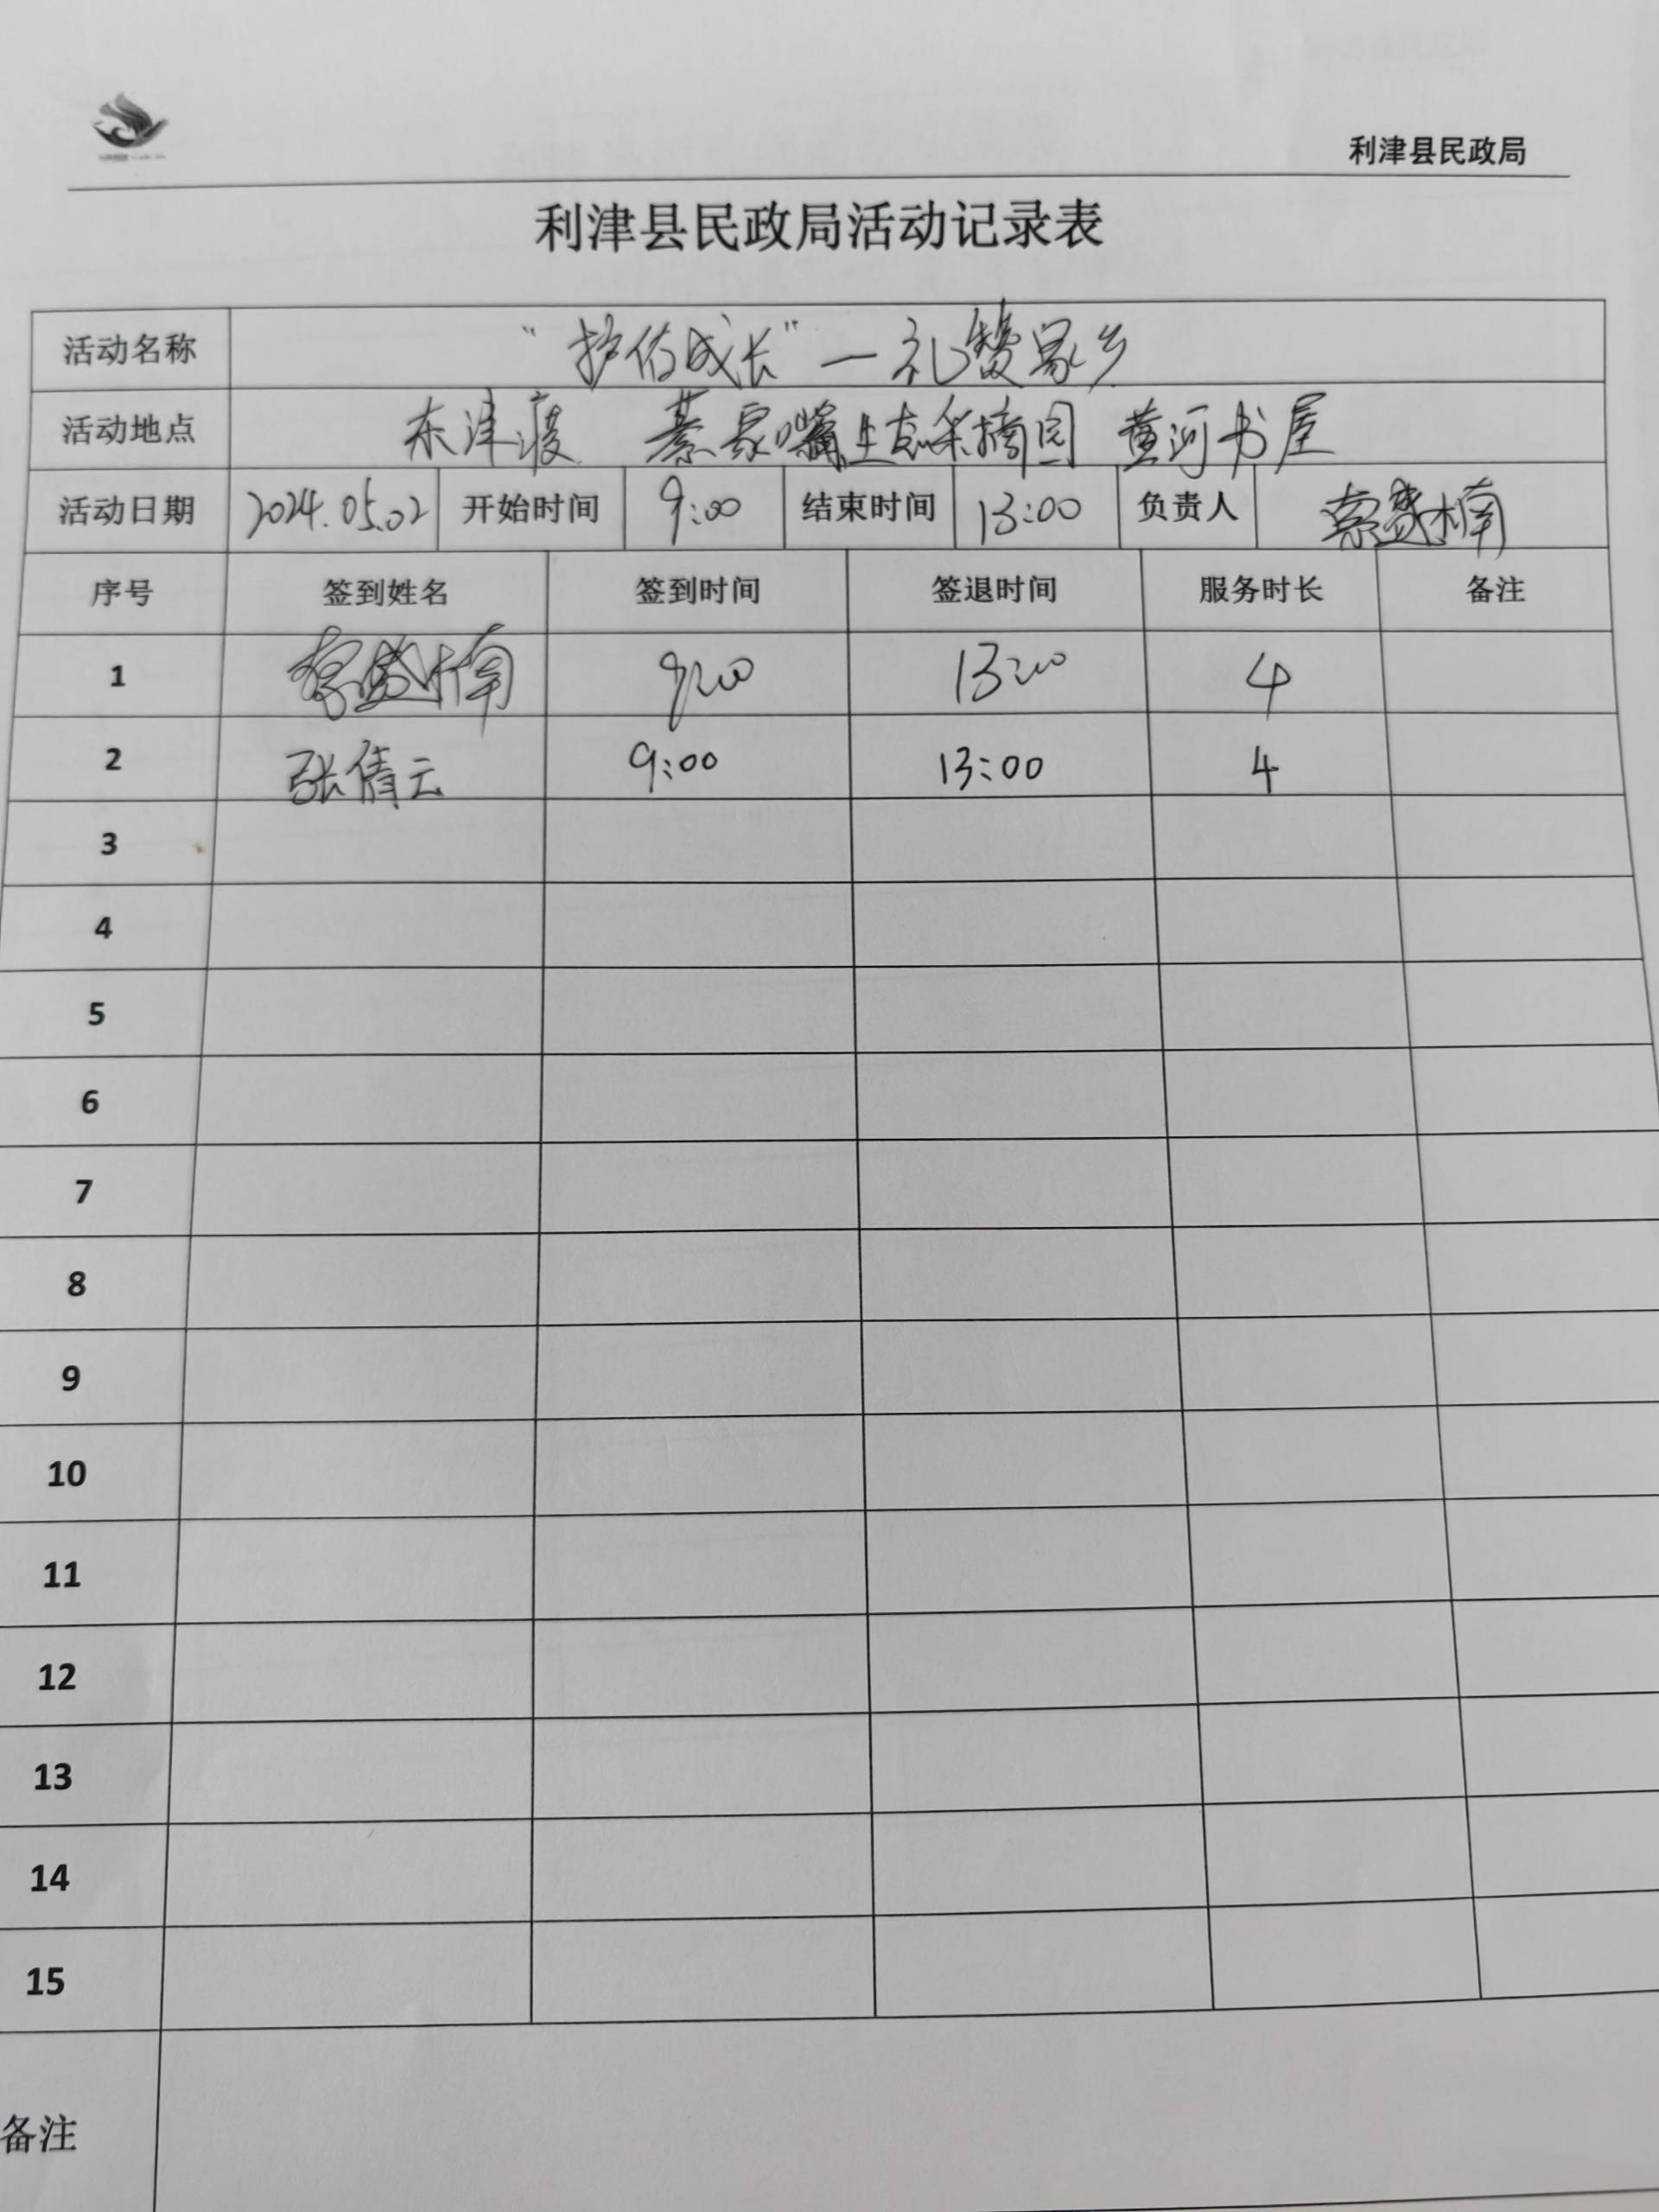 利津县民政局
利津县民政局活动记录表
活动名称 “护佑成长”—礼赞家乡
活动地点 东津渡 綦家嘴生态采摘园 黄河书屋
活动日期 2024.05.02 开始时间 9:00 结束时间 13:00 负责人 索盛楠
序号 签到姓名 签到时间 签退时间 服务时长 备注
1 索盛楠 9:00 13:00 4
2 张倩云 9:00 13:00 4
3
4
5
6
7
8
9
10
11
12
13
14
15
备注